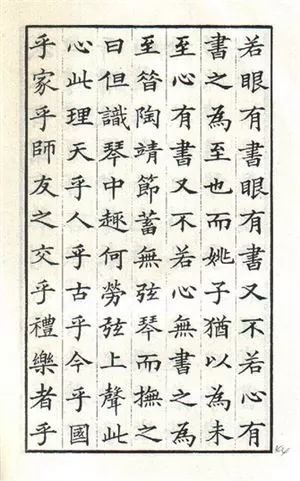 若眼有書眼有書又不若心有
書之為至也而姚子猶以為未
至心有書又不若心無書之為
至晉陶靖節蓄無弦琴而撫之
曰但識琴中趣何勞弦上聲此
心此理天乎人乎古乎今乎國
乎家乎師友之交乎禮樂者乎